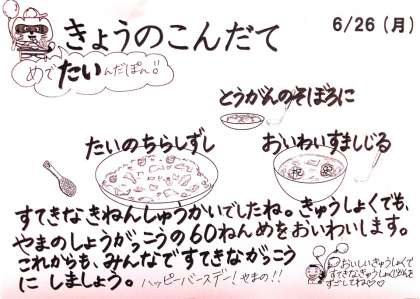 きょうのこんだて
6/26（月）
めでたいんだぽん!!
とうがんのそぼろに
たいのちらしずし
おいわいすましじる
祝
すてきなきねんしゅうかいでしたね。きゅうしょくでも、
やまのしょうがっこうの60ねんめをおいわいします。
これからも、みんなですてきながっこう
に しましょう。ハッピーバースデー！やまの!!
おいしいきゅうしょくで
すてきなきゅうしょくじかんを
すごしてね♡♡